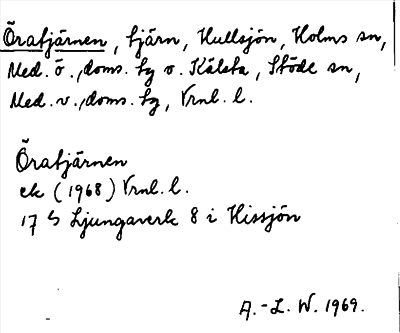 Öratjärnen, tjärn, Hullsjön, Holms sn,
Med. ö., doms. tg o. Kälsta, Stöde sn,
Med. v., doms. tg, Vrnl. l.
Öratjärnen
ek (1968) Vrnl. l.
17 S Ljungaverk 8 i Hissjön
A.-L. W. 1969.